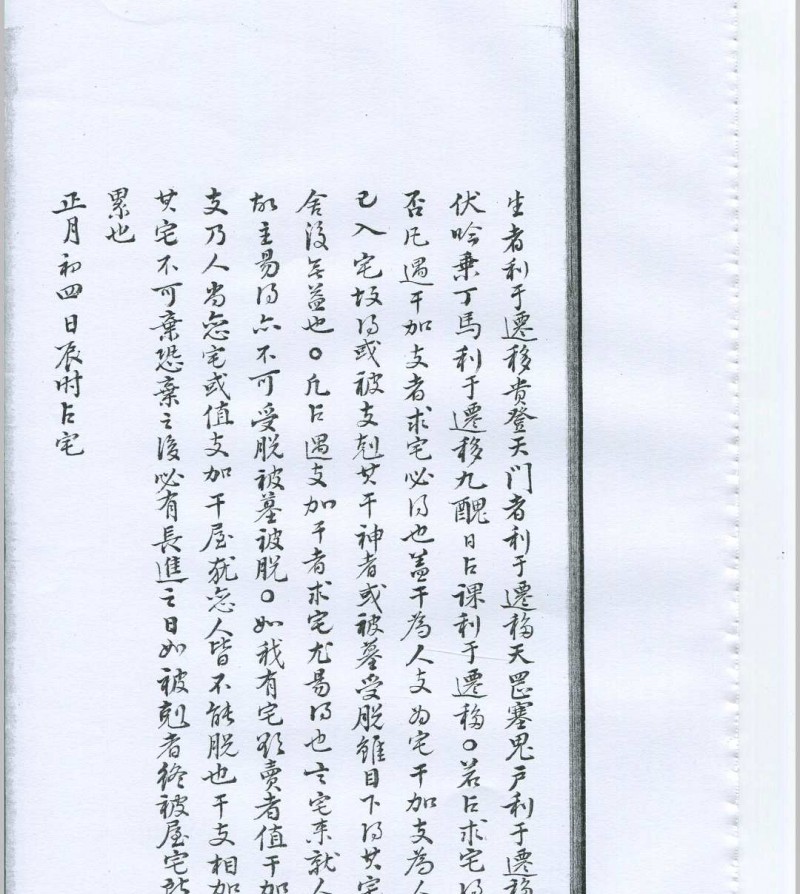 生者利于遷移贵登天门者利于遷移天罡塞鬼户利于遷移
伏吟乗丁馬利于遷移九醜日占課利于遷移〇若占求宅得
否凡遇干加支者求宅必得也盖干為人支为宅干加支為人
已入宅故得或被支尅其干神者或被墓受脱雖目下得其宅
舍後无益也〇凡占遇支加干者求宅尤易得也言宅来就人
故主易得亦不可受脱被墓被脱〇如我有宅欲賣者值干加
支乃人尚恋宅或值支加干屋犹恋人皆不能脱也干支相加
其宅不可棄恐棄之後必有長進之日如被尅者终被屋宅
累也
正月初四日辰时占宅